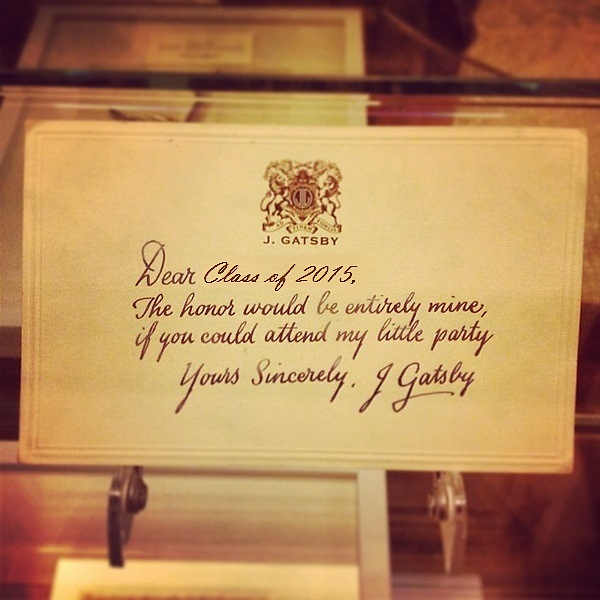 J. GATSBY
Dear Class of 2015,
The honor would be entirely mine,
if you could attend my little party
Yours Sincerely, J Gatsby